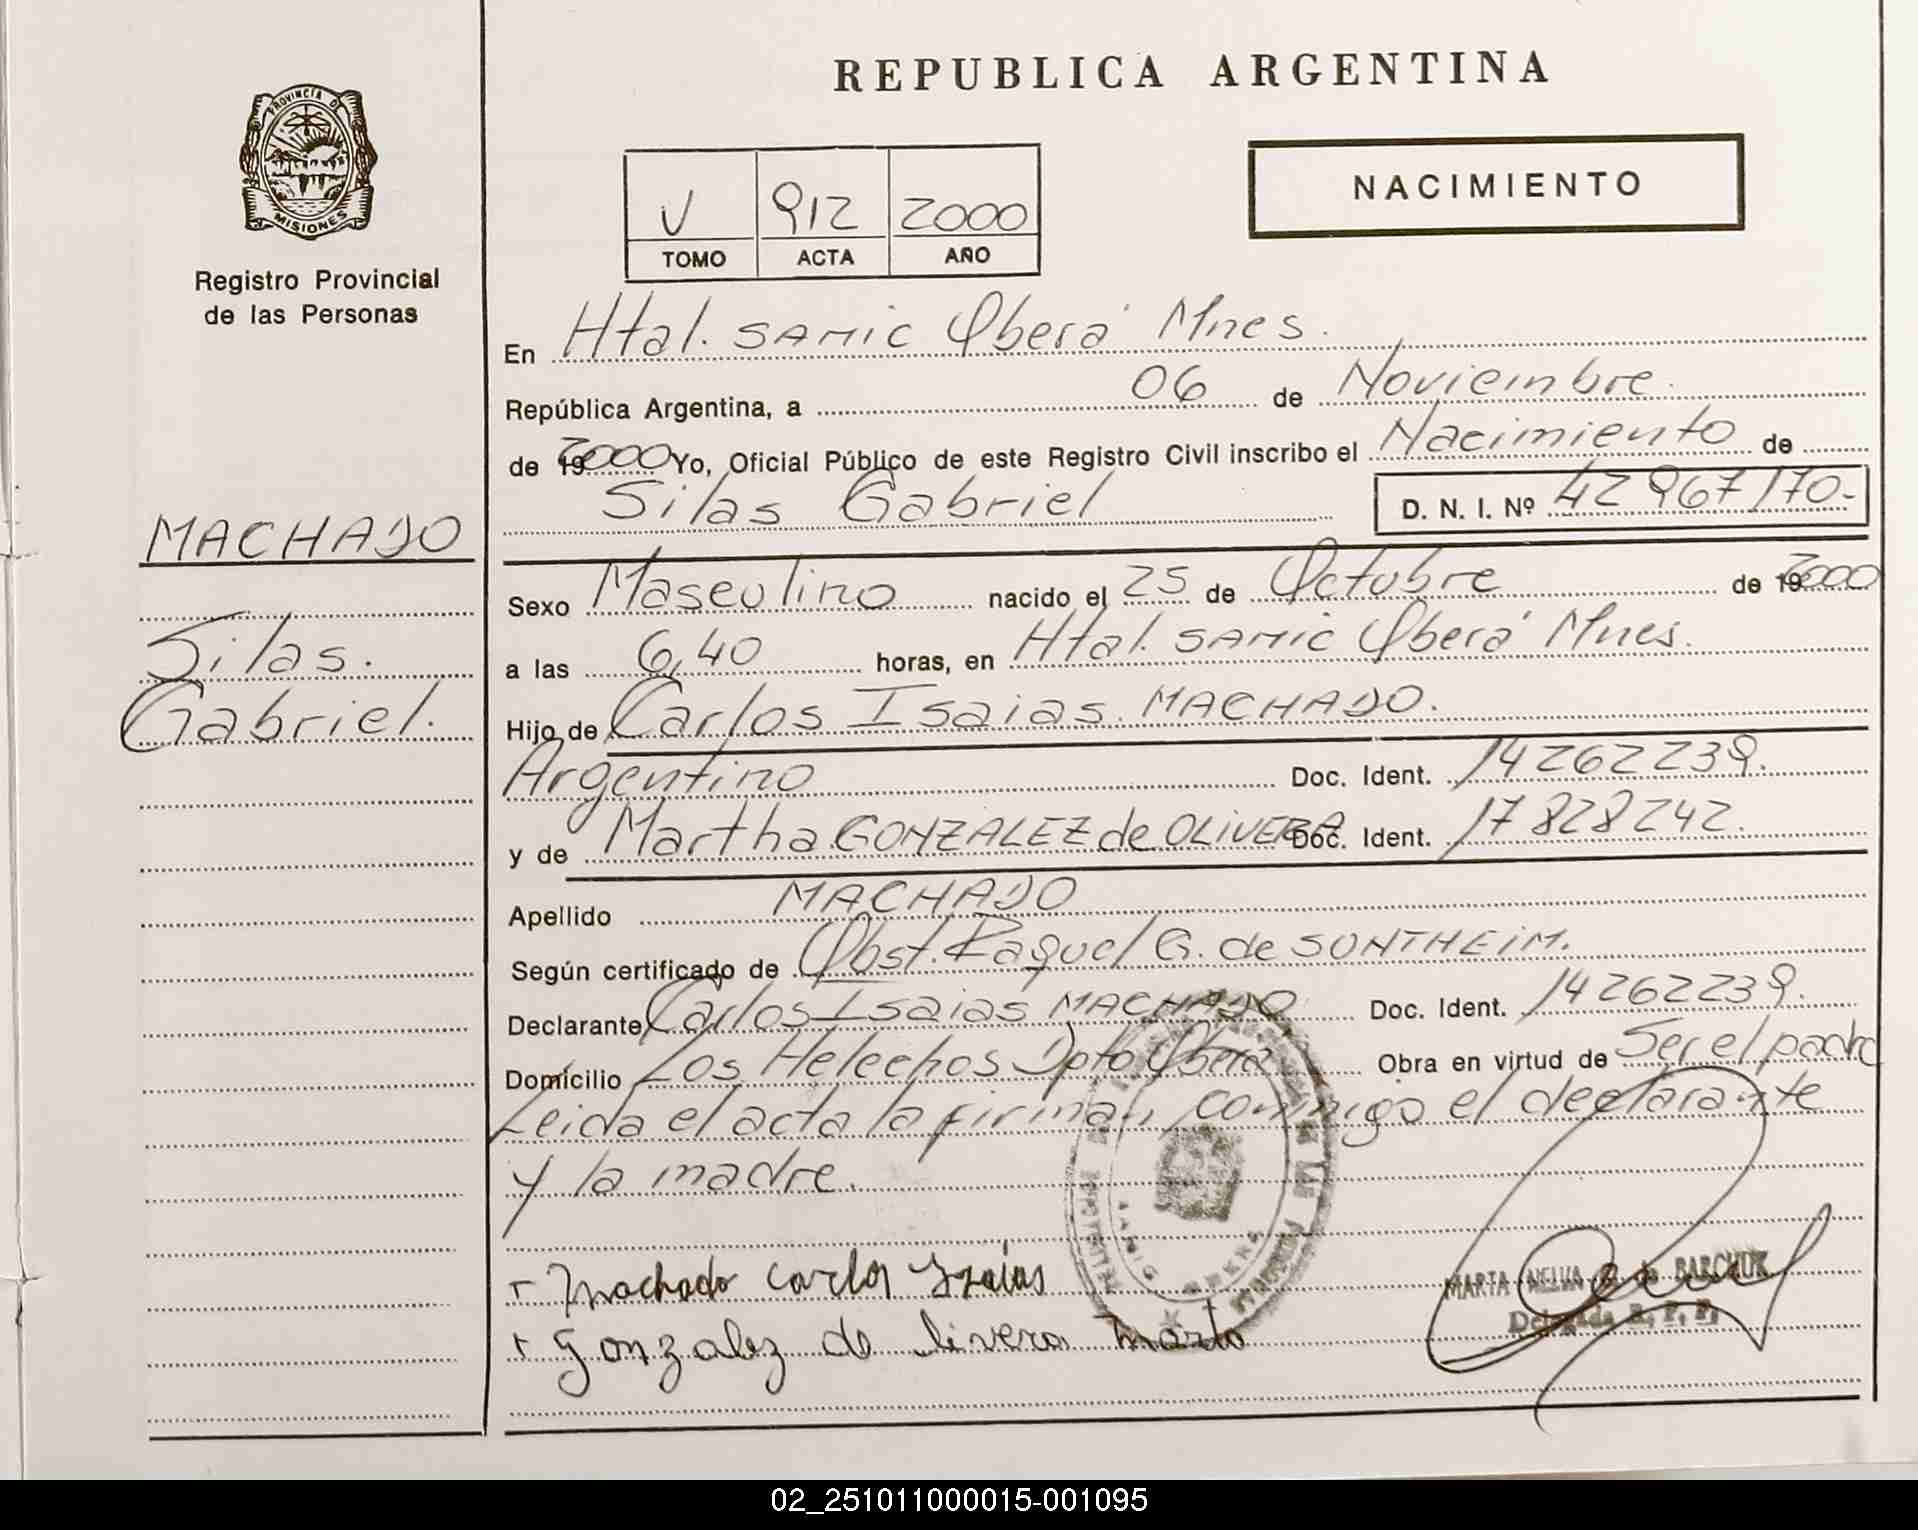 REPUBLICA ARGENTINA
PROVINCIA DE
MISIONES
Registro Provincial
de las Personas
V 912 2000
TOMO ACTA AÑO
NACIMIENTO
En Htal. SAMIC Oberá Mnes.
República Argentina, a 06 de Noviembre
de 2000 Yo, Oficial Público de este Registro Civil inscribo el Nacimiento de
Silas Gabriel D. N. I. Nº 42967170-
MACHADO
Silas.
Gabriel.
Sexo Masculino nacido el 25 de Octubre de 2000
a las 6,40 horas, en Htal. SAMIC Oberá Mnes.
Hijo de Carlos Isaias MACHADO.
Argentino Doc. Ident. 14262239.
y de Martha GONZALEZ de OLIVERA Doc. Ident. 17828242.
Apellido MACHADO
Según certificado de Obst. Raquel G. de SONTHEIM.
Declarante Carlos Isaias MACHADO Doc. Ident. 14262239.
Domicilio Los Helechos Dpto Oberá Obra en virtud de Ser el padre
Leida el acta la firman, conmigo el declarante
y la madre.
+ Machado Carlos Izaias
+ Gonzalez de livera Marta
MARTA NELVA G. de BARCHUK
Delegada R. P. P.
02_251011000015-001095